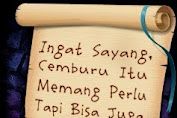 Ingat Sayang,
Cemburu Itu
Memang Perlu
Tapi Bisa Juga